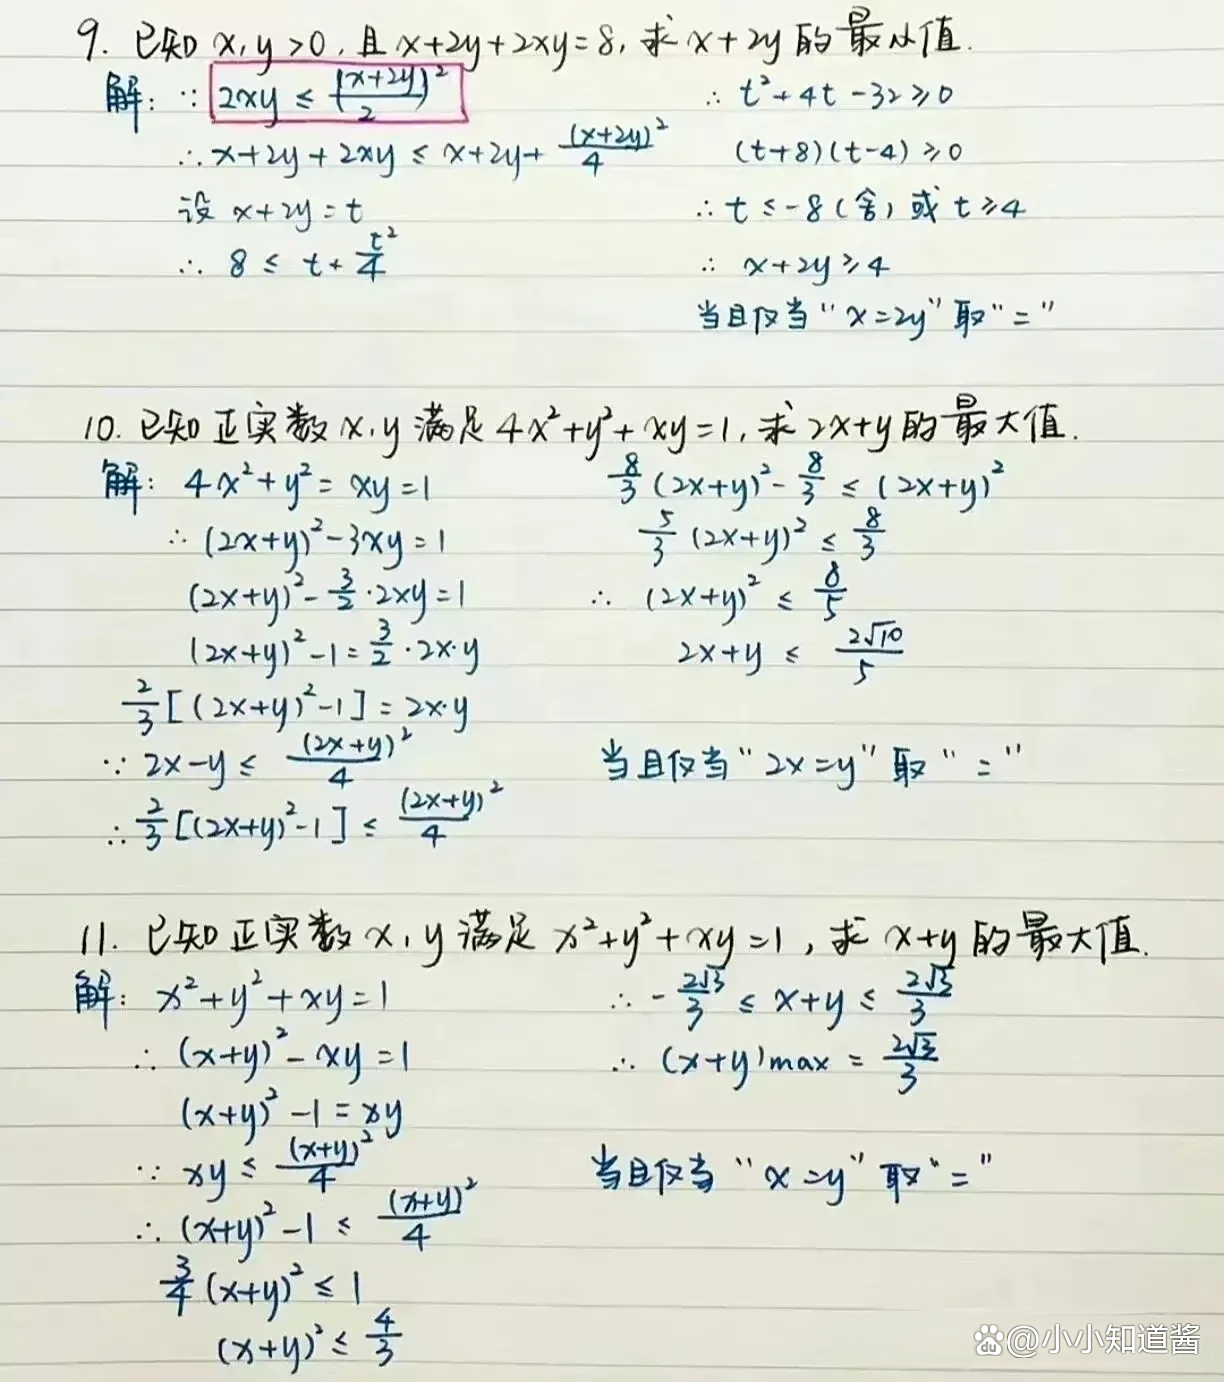 9. 已知 x,y>0,且 x+2y+2xy=8,求 x+2y 的最小值.
解: ∵ 2xy ≤ (\frac{x+2y}{2})^2
∴ x+2y+2xy ≤ x+2y+\frac{(x+2y)^2}{4}
设 x+2y=t
∴ 8 ≤ t+\frac{t^2}{4}
∴ t^2+4t-32≥0
(t+8)(t-4)≥0
∴ t≤-8(舍)或 t≥4
∴ x+2y≥4
当且仅当“x=2y”取“=”
10. 已知正实数 x,y 满足 4x^2+y^2+xy=1,求 2x+y 的最大值.
解: 4x^2+y^2=xy=1
∴ (2x+y)^2-3xy=1
(2x+y)^2-\frac{3}{2}·2xy=1
(2x+y)^2-1=\frac{3}{2}·2x·y
\frac{2}{3}[(2x+y)^2-1]=2x·y
∵ 2x-y ≤ \frac{(2x+y)^2}{4}
∴ \frac{2}{3}[(2x+y)^2-1] ≤ \frac{(2x+y)^2}{4}
\frac{8}{3}(2x+y)^2-\frac{8}{3} ≤ (2x+y)^2
\frac{5}{3}(2x+y)^2 ≤ \frac{8}{3}
∴ (2x+y)^2 ≤ \frac{8}{5}
2x+y ≤ \frac{2\sqrt{10}}{5}
当且仅当“2x=y”取“=”
11. 已知正实数 x,y 满足 x^2+y^2+xy=1,求 x+y 的最大值.
解: x^2+y^2+xy=1
∴ (x+y)^2-xy=1
(x+y)^2-1=xy
∵ xy ≤ \frac{(x+y)^2}{4}
∴ (x+y)^2-1 ≤ \frac{(x+y)^2}{4}
\frac{3}{4}(x+y)^2 ≤ 1
(x+y)^2 ≤ \frac{4}{3}
∴ -\frac{2\sqrt{3}}{3} ≤ x+y ≤ \frac{2\sqrt{3}}{3}
∴ (x+y)max = \frac{2\sqrt{3}}{3}
当且仅当“x=y”取“=”
du @小小知道酱